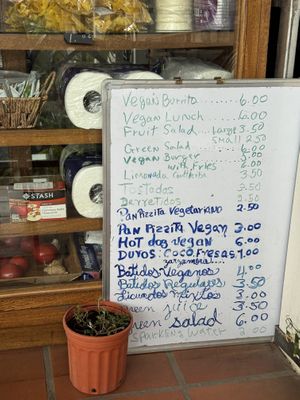 STASH
Vegan Burrito ........ 6.00
Vegan Lunch ...... 6.00
Fruit Salad ... Large 3.50
Small 2.50
Green Salad ........ 6.00
Vegan Burger
with Fries
Limonada
Tostados
Derretidos
Pan Pizzita Vegetariano 2.50
Pan Pizzita Vegan 3.00
Hot dog Vegan 6.00
DUROS: COCO, FRESAS, 1.00
Batidos Veganos 4.00
Batidos Regulares 3.50
Licuados Mixtos 3.00
Green Juice 3.50
Green salad 6.00
Sparkling Water 2.00